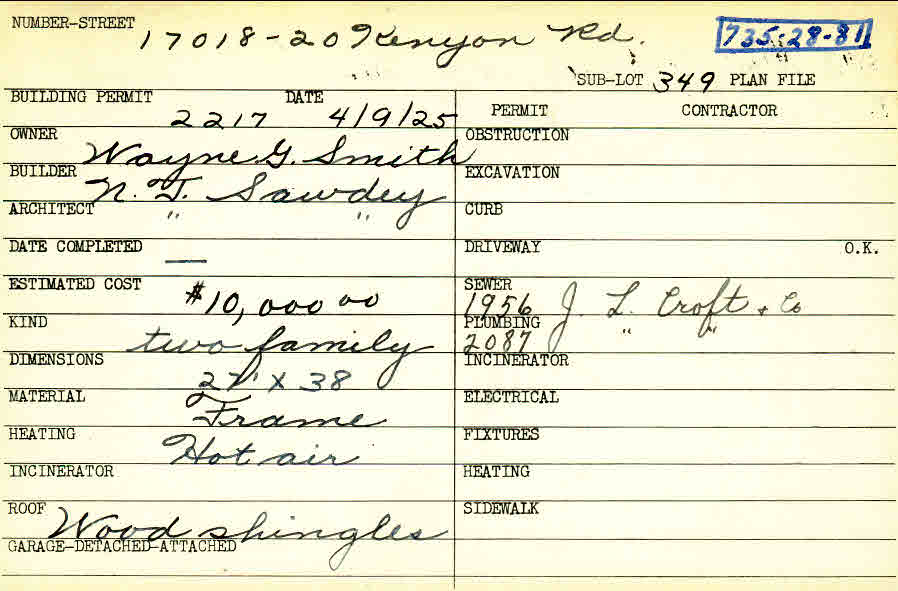 NUMBER-STREET 17018-20 Kenyon Rd. 735-28-81
SUB-LOT 349 PLAN FILE
BUILDING PERMIT 2217 DATE 4/9/25
OWNER Wayne G. Smith
BUILDER N. T. Sawdey
ARCHITECT " "
DATE COMPLETED —
ESTIMATED COST $10,000 00
KIND two family
DIMENSIONS 27' X 38
MATERIAL Frame
HEATING Hot air
INCINERATOR
ROOF Wood shingles
GARAGE-DETACHED-ATTACHED
PERMIT CONTRACTOR
OBSTRUCTION
EXCAVATION
CURB
DRIVEWAY O.K.
SEWER 1956 J. L. Croft & Co
PLUMBING 2087 " "
INCINERATOR
ELECTRICAL
FIXTURES
HEATING
SIDEWALK